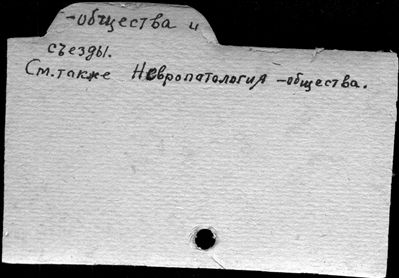 -общества и
съезды.
См. также Невропатология -общества.